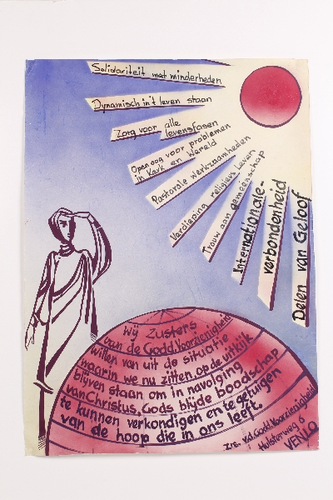 Solidariteit met minderheden
Dynamisch in't leven staan
Zorg voor alle
levensfasen
Open oog voor problemen
in Kerk en Wereld
Pastorale werkzaamheden
Verdieping religieus Leven
Trouw aan gemeenschap
Internationale-
verbondenheid
Delen van Geloof
Wij Zusters
van de Godd. Voorzienigheid
willen van uit de situatie
waarin we nu zitten op de uitkijk
blijven staan om in navolging
van Christus, Gods blijde boodschap
te kunnen verkondigen en te getuigen
van de hoop die in ons leeft.
Zrs. v.d. Godd. Voorzienigheid
Hulsterweg 6
VENLO